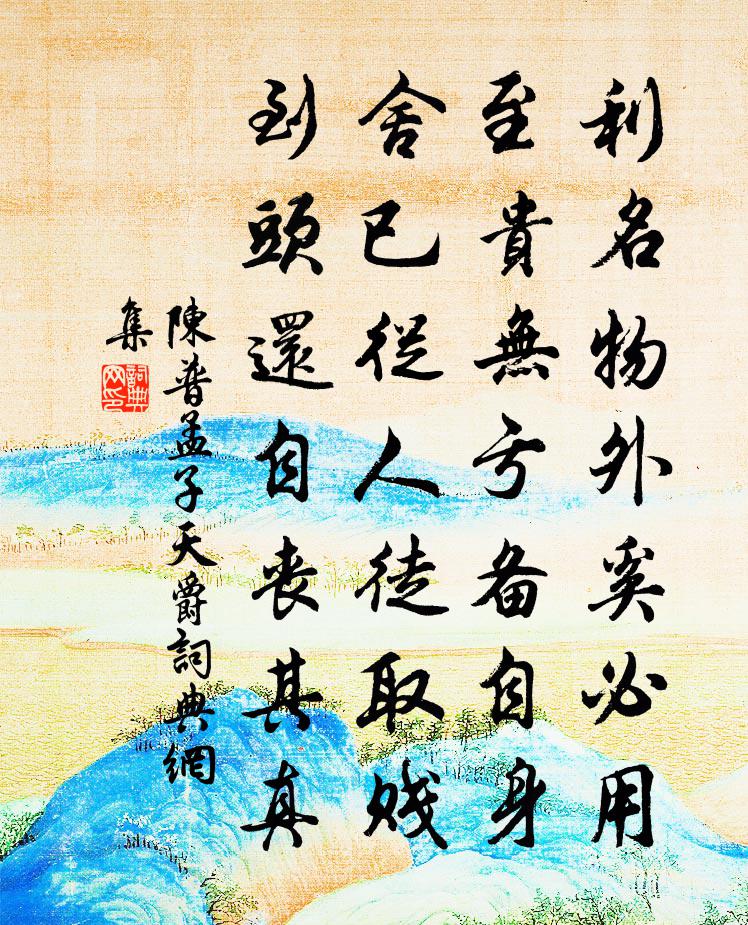 利名物外奚必用
至貴無亏备自身
舍已從人徒取贱
到頭還自丧其真
陳普孟子天爵詞典網
集
詞典
网印